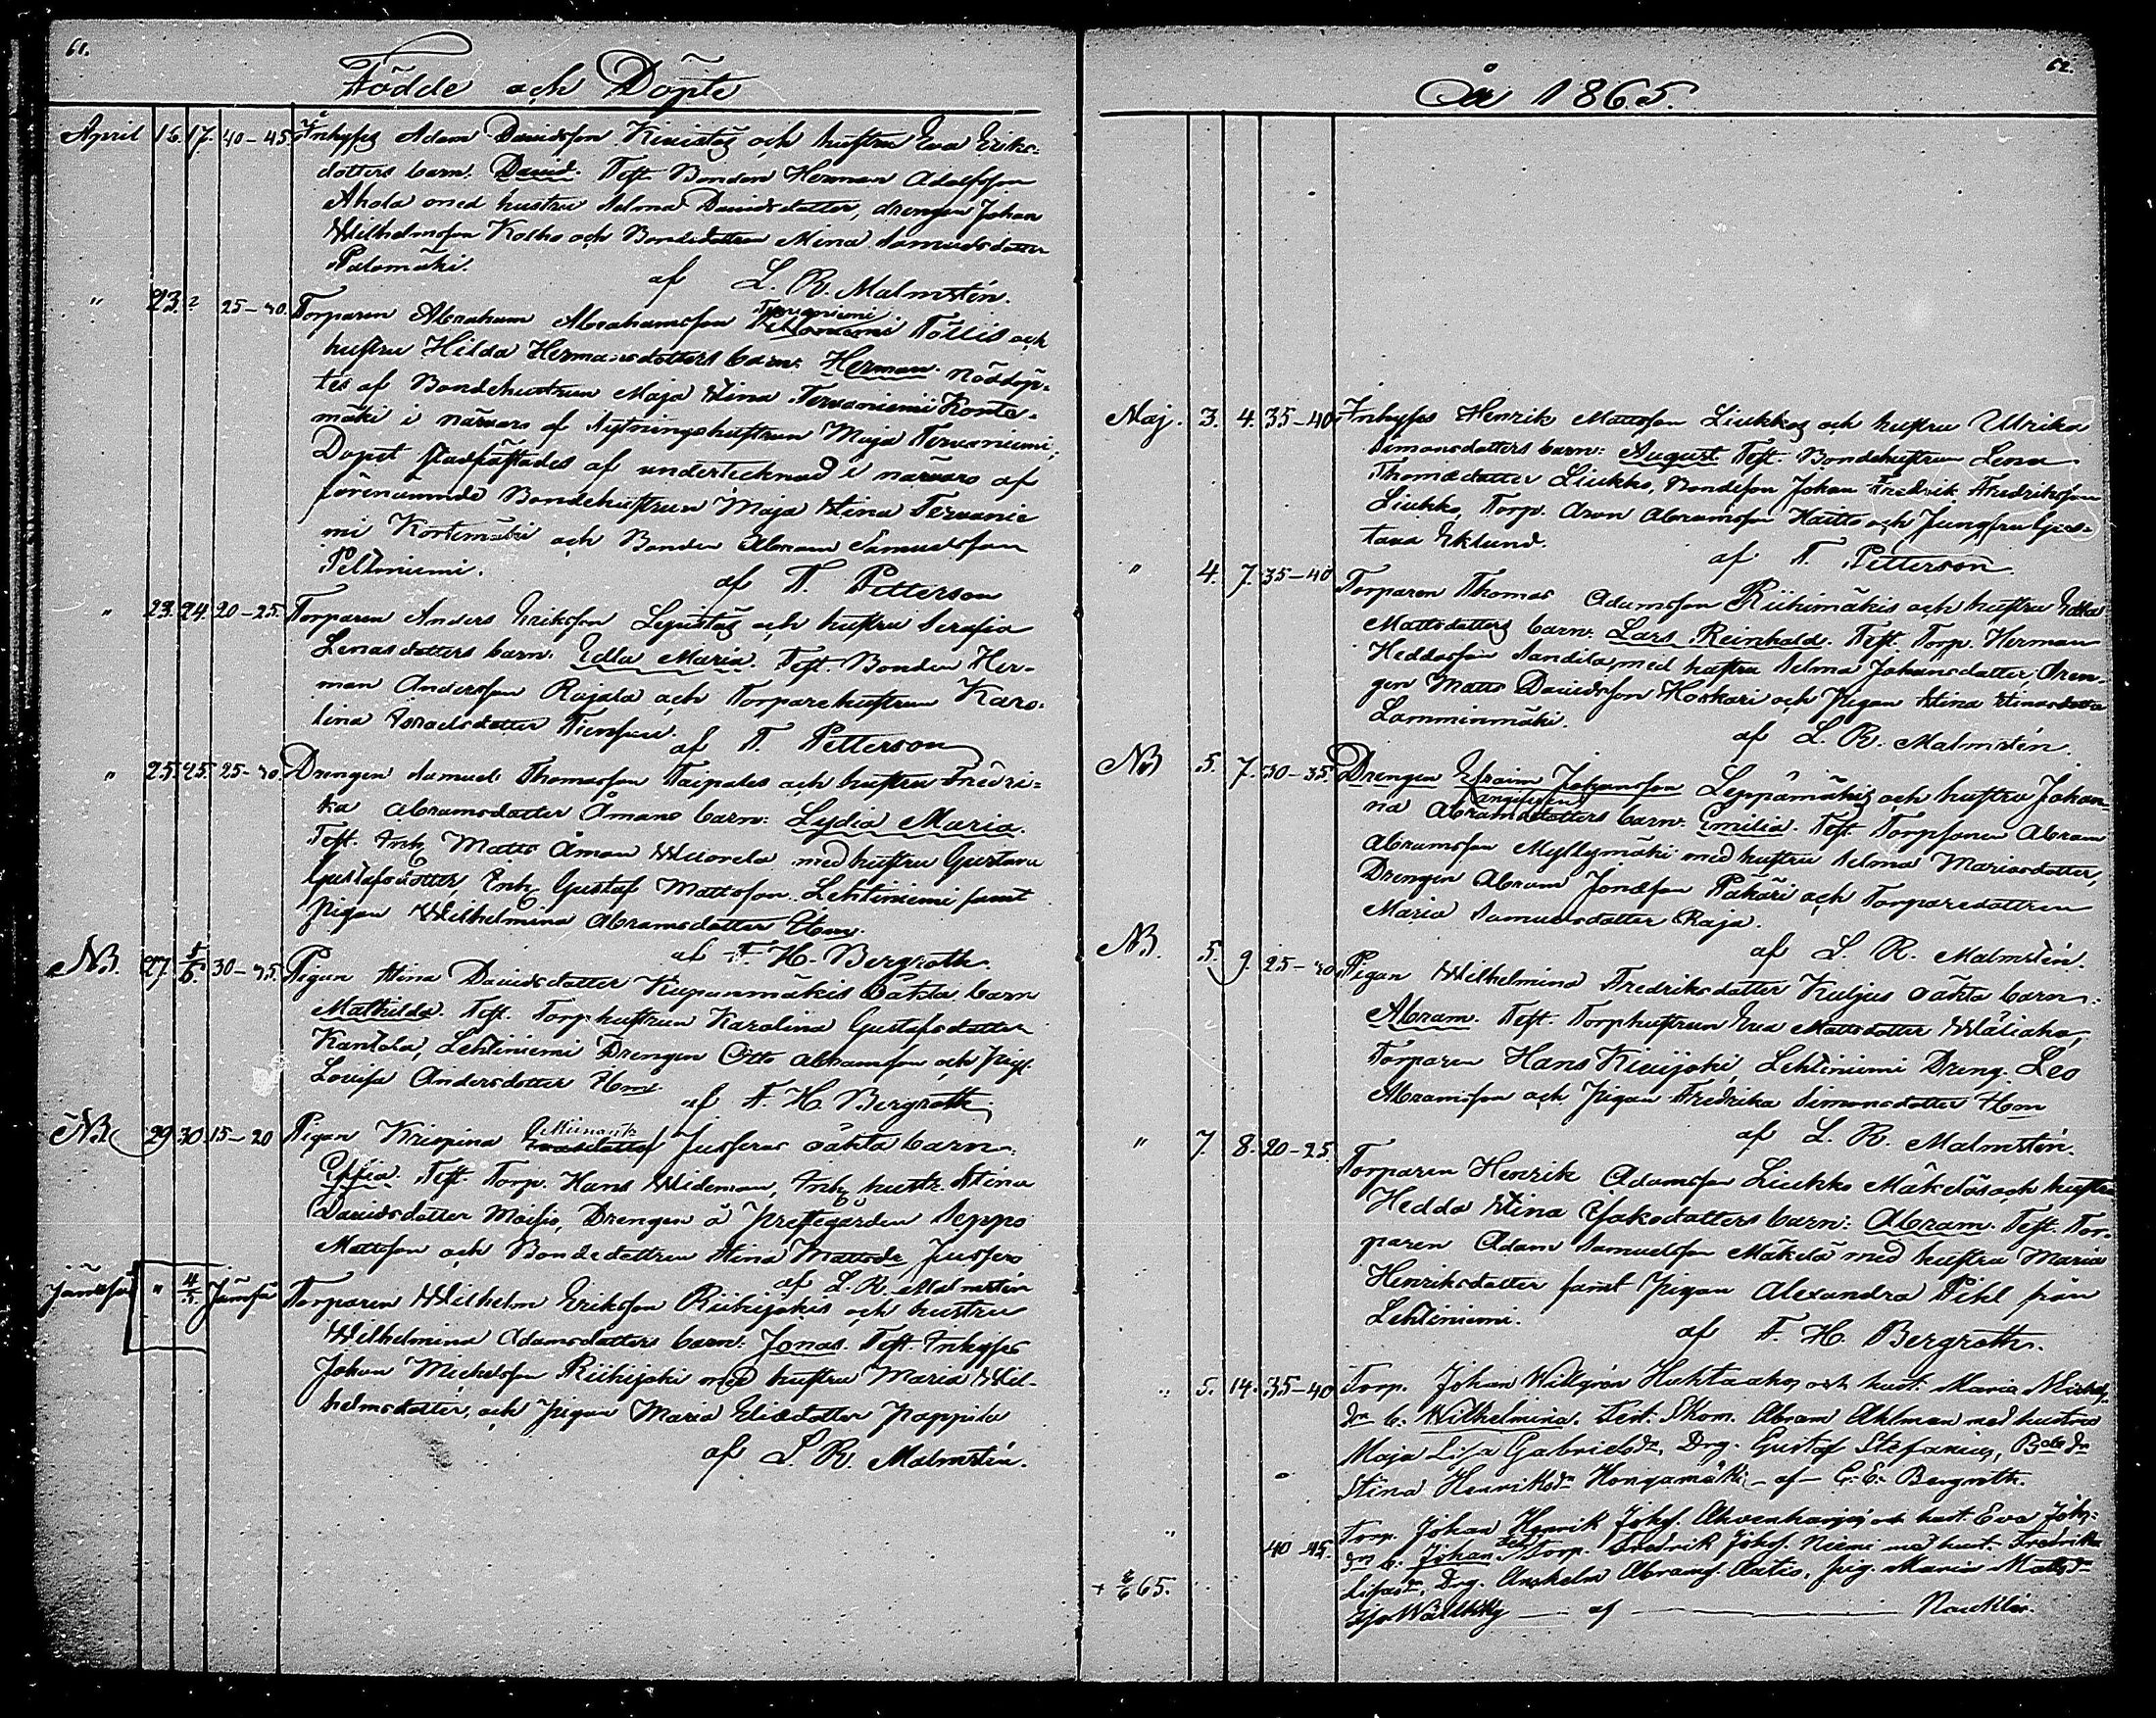 61.
Födde och Döpte
April 16. 17. 40-45. Inhyses Adam Davidsson Kiviatz och hustru Eva Eriks-
dotters barn. David. Test. Bonden Herman Adolfsson
Ahola med hustru Selma Davidsdotter, drengen Johan
Wilhelmsson Kosko och Bondedottren Mina Samuelsdotter
Palomäki.
af L. R. Malmstén.
" 23. ? 25-30. Torparen Abraham Abrahamsson Tervaniemi Töllis och
hustru Hilda Hermansdotters barn: Herman. nöddöp-
tes af Bondehustrun Maja Stina Tervaniemi Korte-
mäki i närvaro af Sytningshustrun Maja Tervaniemi;
Dopet stadfästades af undertecknad i närvaro af
förenämnde Bondehustrun Maja Stina Tervanie
mi Kortemäki och Bonden Abram Samuelsson
Peltoniemi.
af T. Petterson
" 23. 24. 20-25. Torparen Anders Eriksson och hustru Serafia
Lenasdotters barn. Edla Maria. Test. Bonden Her-
man Andersson Rajala och Torparehustrun Karo-
lina Israelsdotter
af T. Petterson
" 25. 25. 25-30. Drengen Samuel Thomasson Taipales och hustru Fredri-
ka Abramsdotter Åmans barn: Lydia Maria.
Test. Inh. Matts Åman Wuorela med hustru Gustava
Gustafsdotter, Inh. Gustaf Mattsson Lehtiniemi samt
pigan Wilhelmina Abramsdotter
af F. H. Bergroth.
NB. 27. 1/5. 30-35. Pigan Stina Davidsdotter Kiepunmäkis oäkta barn
Mathilda. Test. Torphustrun Karolina Gustafsdotter
Kantola, Lehtiniemi Drengen Otto Abramsson och pig.
Lovisa Andersdotter Hem.
af F. H. Bergroth
NB 29 30 15-20 Pigan Krispina Jusseras oäkta barn:
Test. Torp. Hans Wideman, Inh. hustr. Stina
Davidsdotter Moisio, Drengen å prestegården Seppo
Mattsson och Bondedottren Stina Mattsdr Jussera
af L. R. Malmstén
Jämsjä " 4/5. Jämsä Torparen Wilhelm Eriksson Riihijokis och hustru
Wilhelmina Adamsdotters barn: Jonas. Test. Inhyses
Johan Michelsson Riihijoki med hustru Maria Wil-
helmsdotter, och pigan Maria Eliedotter Pappila
af L. R. Malmstén.
62.
År 1865.
Maj. 3. 4. 35-40. Inhyses Henrik Mattsson Liukkos och hustru Ulrika
Simonsdotters barn: August. Test. Bondehustrun Lena
Thomasdotter Liukko, Bondeson Johan Fredrik Fredriksson
Liukko, Torp. Aron Abramsson Hautto och Jungfru Gus-
tava Eklund.
af T. Petterson.
" 4. 7. 35-40 Torparen Thomas Adamsson Riihimäkis och hustru Edla
Mattsdotters barn: Lars Reinhold. Test. Torp. Herman
Heddasson Sandila med hustru Selma Johansdotter, Dren-
gen Matts Davidsson Koskari och pigan Stina Stinasdotter
Lamminmäki.
af L. R. Malmstén.
NB 5. 7. 30-35. Drengen Efraim Johansson Leppämäkis och hustru Johan
na Abramsdotters barn. Emilia. Test. Torpsonen Abram
Abramsson Myllymäki med hustru Selma Mariasdotter,
Drengen Abram Jonasson Pakäri och Torparedottren
Maria Samuelsdotter Raja.
af L. R. Malmstén.
NB. 5. 9. 25-30 Pigan Wilhelmina Fredriksdotter Kuljus oäkta barn:
Abram. Test. Torphustrun Eva Mattsdotter Wäliaho,
Torparen Hans Kiviijoki, Lehtiniemi Dreng. Leo
Abramsson och pigan Fredrika Simonsdotter Hem
af L. R. Malmstén.
" 7. 8. 20-25. Torparen Henrik Adamsson Liukko Mäkeläs och hustru
Hedda Stina Isaksdotters barn: Abram. Test. Tor-
paren Adam Samuelsson Mäkelä med hustru Maria
Henriksdotter samt pigan Alexandra Pihl från
Lehtiniemi.
af F. H. Bergroth.
" 5. 14. 35-40 Torp. Johan Willgrén Huhtaahos och hust. Maria Michels
dr b: Wilhelmina. Test: Skom. Abram Ahlman med hustru
Maja Lisa Gabrielsdr, Drg. Gustaf Stefanius, Bde dr
Stina Henriksdr Hongamäki - af - C. E. Bergroth.
" 40-45. Torp. Johan Henrik Johs. Ahvenharju och hust. Eva Johs-
dr b. Johan. Torp. Fredrik Johs. Niemi med hust. Fredrika
Lisasdr, Drg. Anshelm Abrams. Autio, pig. Maria Mattsdr
+ 8/6 65.
af